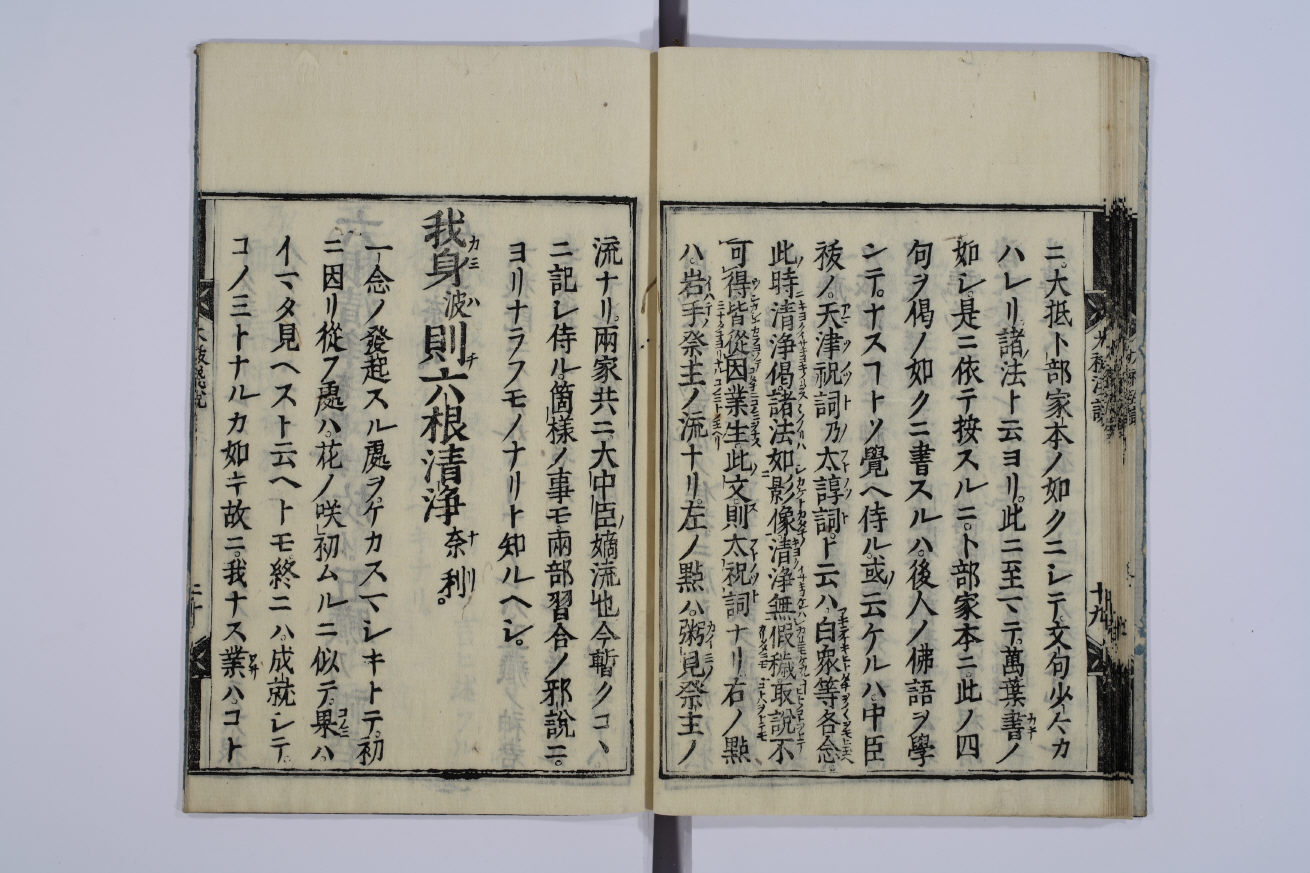 ニ。大抵卜部家本ノ如クニシテ。文句少〱カ
ハレリ。諸法ト云ヨリ。此ニ至マテ。萬葉書ノ
如シ。是ニ依テ按スルニ。卜部家本ニ。此ノ四
句ヲ偈ノ如クニ書スルハ。後人ノ佛語ヲ學
ンテ。ナスコトソ覺ヘ侍ル。或云ケルハ。中臣
祓ノ。天津祝詞乃太諄詞。ト云ハ。白衆等各念
此時清浄偈。諸法如影像清浄無假穢取說不
可得皆從因業生。此文則太祝詞ナリ右ノ點
ハ。岩手祭主ノ流ナリ。左ノ點ハ。粥見祭主ノ
流ナリ。兩家共ニ。大中臣ノ嫡流也今暫クコヽ
ニ記シ侍ル。箇樣ノ事モ。兩部習合ノ邪說ニ。
ヨリナラフモノナリト知ルヘシ。
我身波則六根清浄奈利。
一念ノ發起スル處ヲ。ケカスマシキトテ。初
ニ因リ從フ處ハ。花ノ咲初ムルニ似テ。果ハ
イマタ見ヘスト云ヘトモ。終ニハ。成就シテ。
コノミトナルカ如キ故ニ。我ナス業ハ。コト
大祓
十九